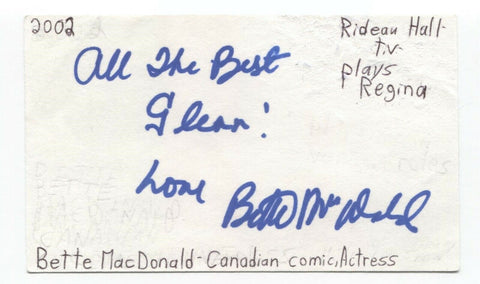 2002
Rideau Hall
tv
plays
Regina
All The Best
Glenn!
Love
Bette MacDonald
Bette MacDonald - Canadian comic, Actress